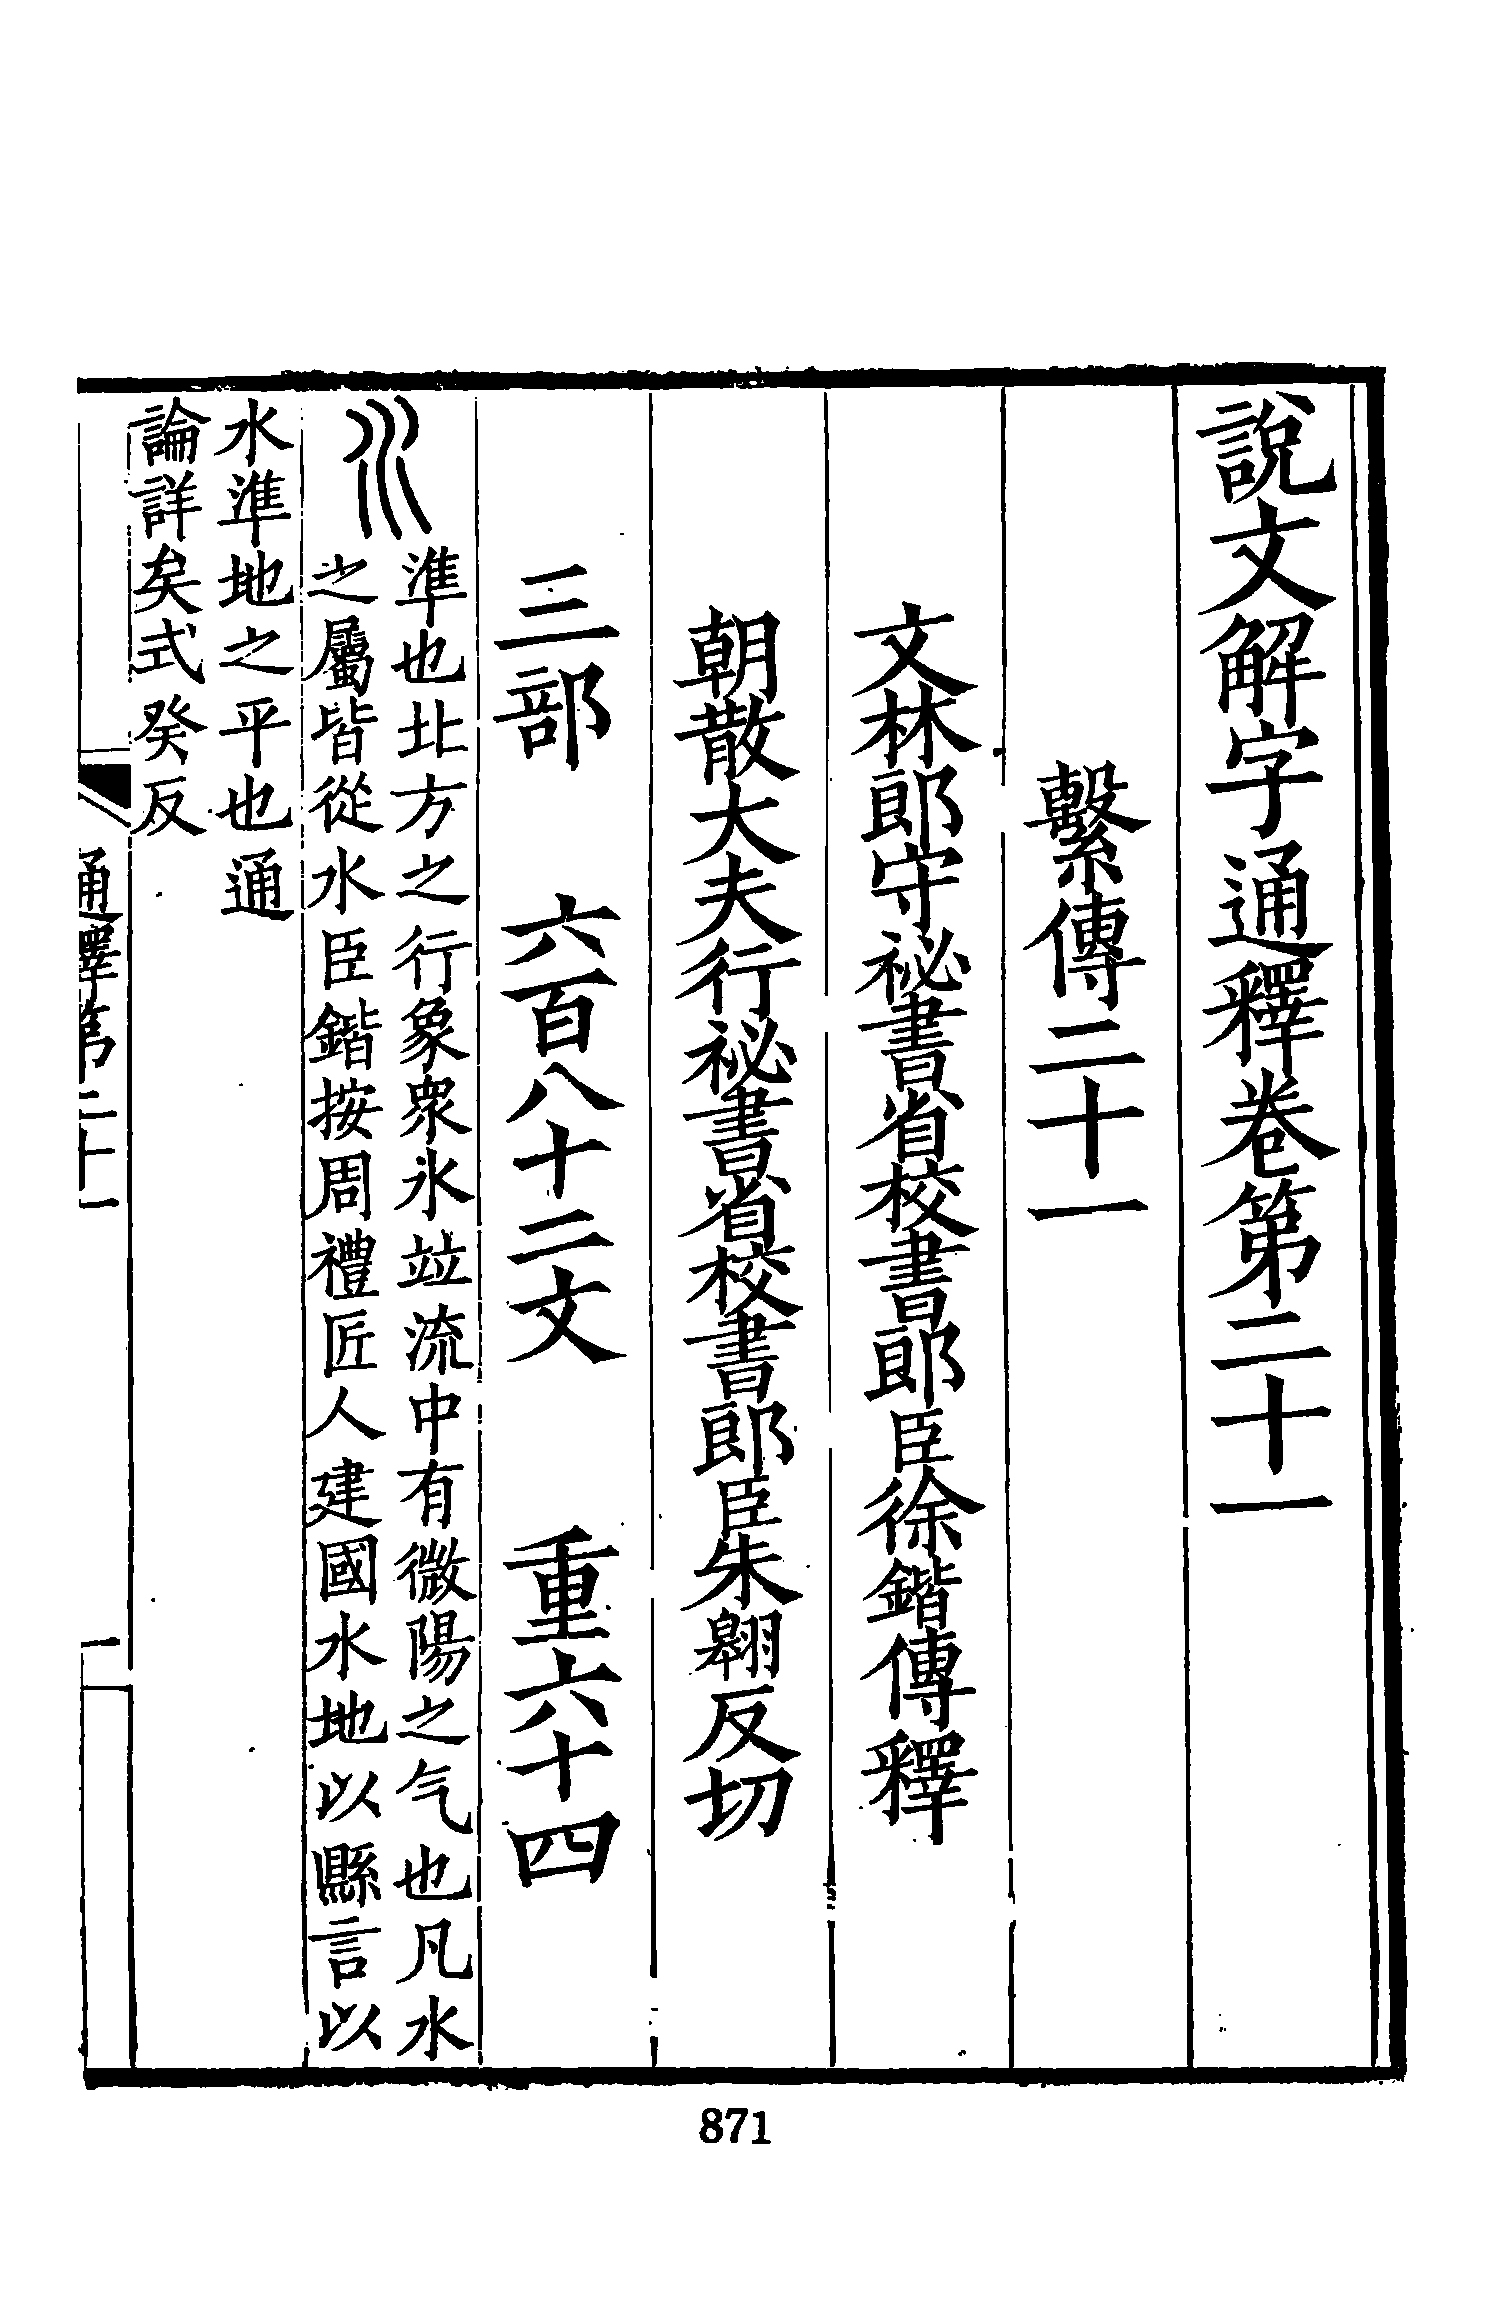 說文解字通釋卷第二十一
繫傳二十一
文林郎守祕書省校書郎臣徐鍇傳釋
朝散大夫行祕書省校書郎臣朱翱反切
三部　六百八十二文　重六十四
水
準也北方之行象衆水竝流中有微陽之气也凡水
之屬皆從水臣鍇按周禮匠人建國水地以縣言以
水準地之平也通
論詳矣式癸反
通釋第二十一
一
871